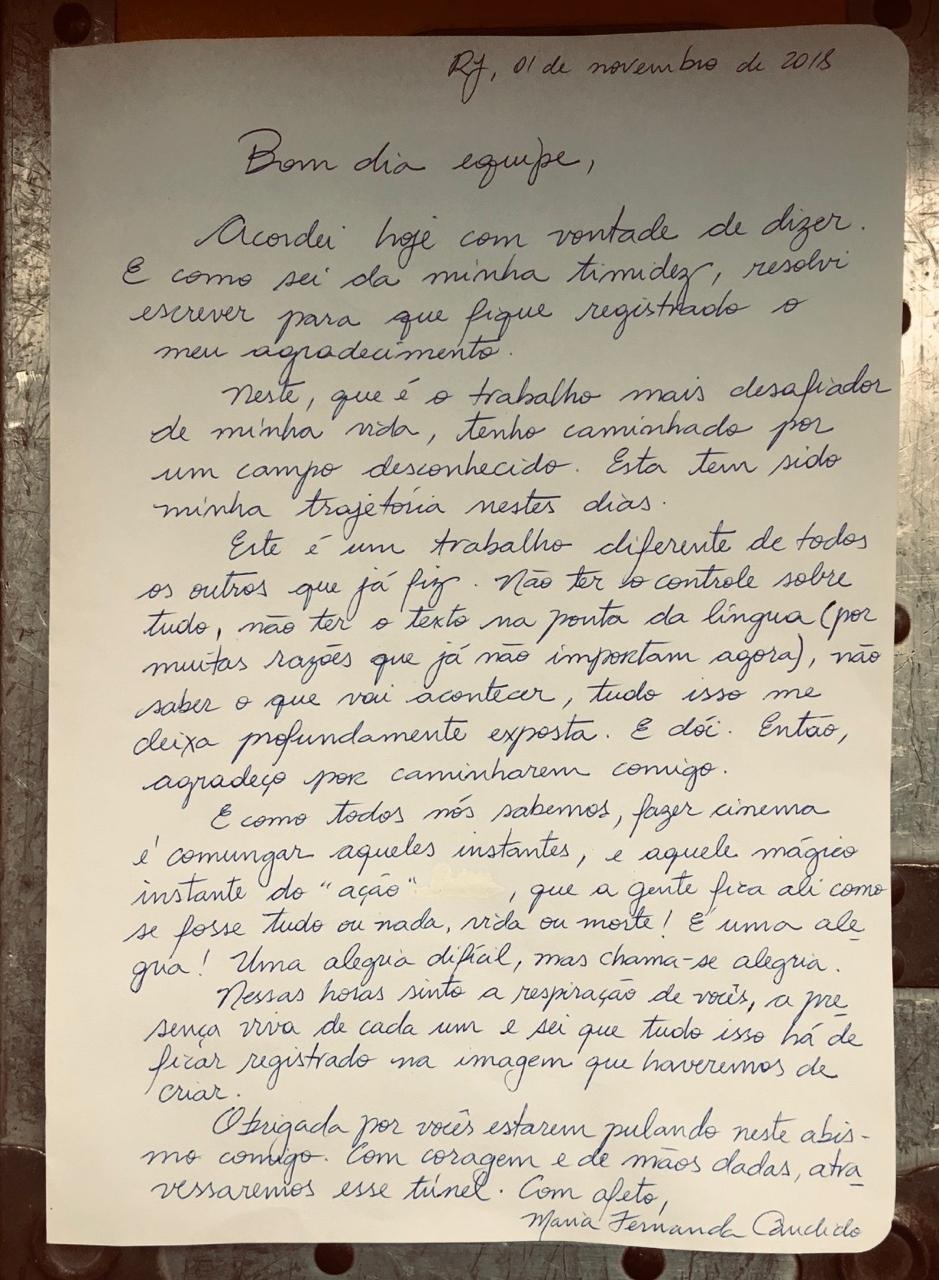 RJ, 01 de novembro de 2018
Bom dia equipe,
Acordei hoje com vontade de dizer.
E como sei da minha timidez, resolvi
escrever para que fique registrado o
meu agradecimento.
Neste, que é o trabalho mais desafiador
de minha vida, tenho caminhado por
um campo desconhecido. Esta tem sido
minha trajetória nestes dias.
Este é um trabalho diferente de todos
os outros que já fiz. Não ter o controle sobre
tudo, não ter o texto na ponta da língua (por
muitas razões que já não importam agora), não
saber o que vai acontecer, tudo isso me
deixa profundamente exposta. E dói. Então,
agradeço por caminharem comigo.
E como todos nós sabemos, fazer cinema
é comungar aqueles instantes, e aquele mágico
instante do "ação" , que a gente fica ali como
se fosse tudo ou nada, vida ou morte! É uma ale-
gria! Uma alegria difícil, mas chama-se alegria.
Nessas horas sinto a respiração de vocês, a pre-
sença viva de cada um e sei que tudo isso há de
ficar registrado na imagem que haveremos de
criar.
Obrigada por vocês estarem pulando neste abis-
mo comigo. Com coragem e de mãos dadas, atra-
vessaremos esse túnel. Com afeto,
Maria Fernanda Cândido